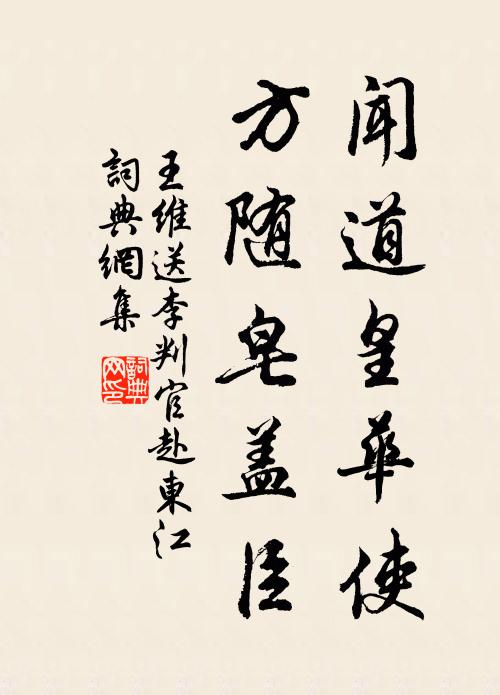 聞道皇華使
方随皂盖臣
王維送李判官赴東江
詞典網集
詞典網印